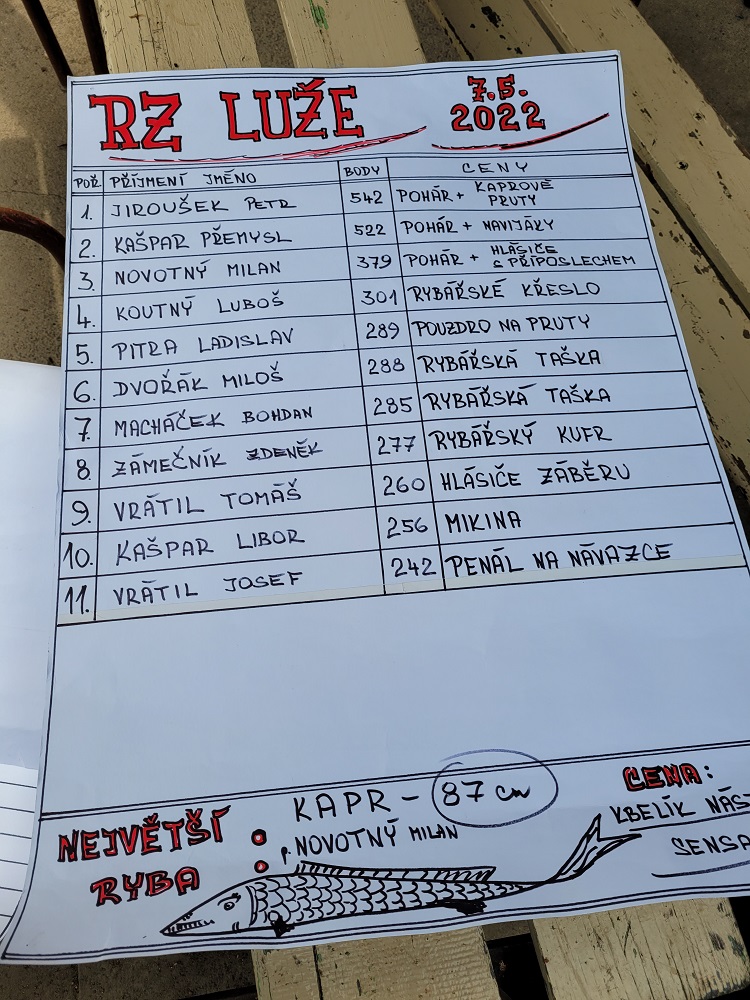 RZ LUŽE 7.5. 2022
POŘ. PŘÍJMENÍ JMÉNO BODY CENY
1. JIROUŠEK PETR 542 POHÁR + KAPROVÉ PRUTY
2. KAŠPAR PŘEMYSL 522 POHÁR + NAVIJÁKY
3. NOVOTNÝ MILAN 379 POHÁR + HLÁSIČE S PŘÍPOSLECHEM
4. KOUTNÝ LUBOŠ 301 RYBÁŘSKÉ KŘESLO
5. PITRA LADISLAV 289 POUZDRO NA PRUTY
6. DVOŘÁK MILOŠ 288 RYBÁŘSKÁ TAŠKA
7. MACHÁČEK BOHDAN 285 RYBÁŘSKÁ TAŠKA
8. ZÁMEČNÍK ZDENĚK 277 RYBÁŘSKÝ KUFR
9. VRÁTIL TOMÁŠ 260 HLÁSIČE ZÁBĚRU
10. KAŠPAR LIBOR 256 MIKINA
11. VRÁTIL JOSEF 242 PENÁL NA NÁVAZCE
NEJVĚTŠÍ RYBA :
KAPR - 87 cm
p. NOVOTNÝ MILAN
CENA:
KBELÍK NÁS
SENSA